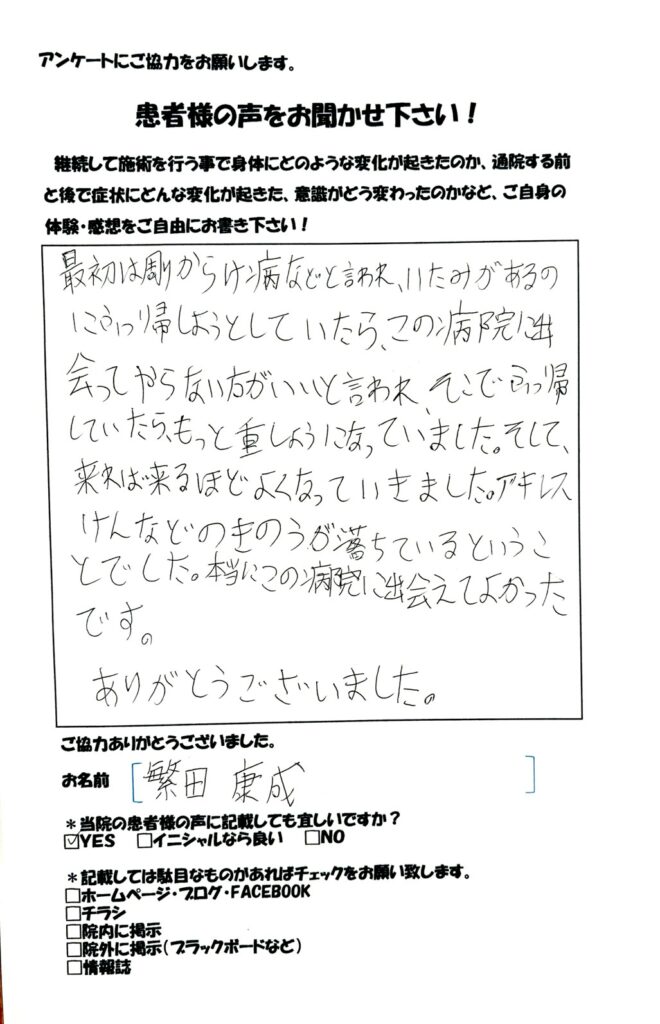 アンケートにご協力をお願いします。
患者様の声をお聞かせ下さい！
継続して施術を行う事で身体にどのような変化が起きたのか、通院する前
と後で症状にどんな変化が起きた、意識がどう変わったのかなど、ご自身の
体験・感想をご自由にお書き下さい！
最初は周りからけ病などと言われ、いたみがあるの
にふっ帰しようとしていたら、この病院に出
会ってやらない方がいいと言われ、そこでふっ帰
していたら、もっと重しょうになっていました。そして、
来れば来るほどよくなっていきました。アキレス
けんなどのきのうが落ちているというこ
とでした。本当にこの病院に出会えてよかった
です。
ありがとうございました。
ご協力ありがとうございました。
お名前 [繁田 康成 ]
＊当院の患者様の声に記載しても宜しいですか？
☑YES □イニシャルなら良い □NO
＊記載しては駄目なものがあればチェックをお願い致します。
□ホームページ・ブログ・FACEBOOK
□チラシ
□院内に掲示
□院外に掲示（ブラックボードなど）
□情報誌